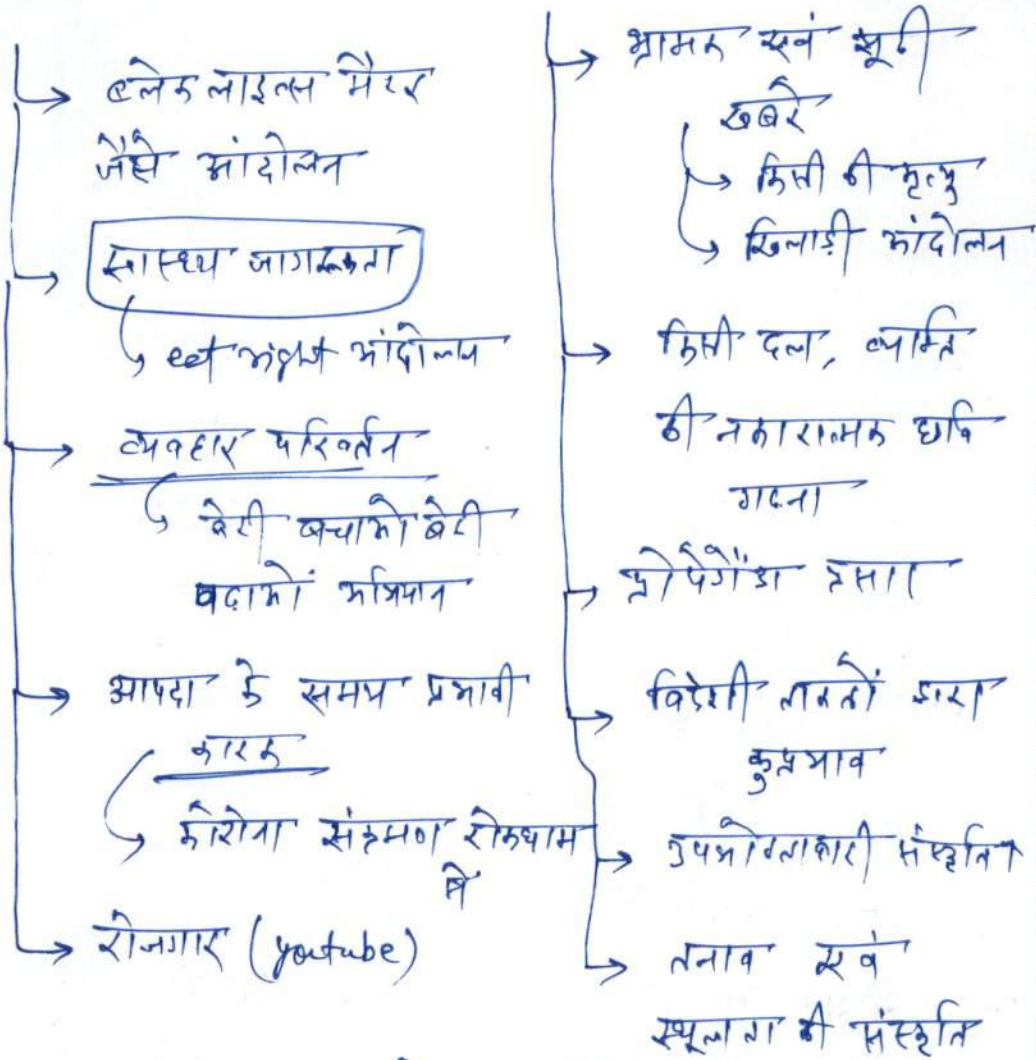 ब्लैक लाइव्स मैटर
जैसे आंदोलन
स्वास्थ्य जागरूकता
eat आंदोलन
व्यवहार परिवर्तन
बेटी बचाओ बेटी
पढ़ाओं अभियान
आपदा के समय प्रभावी
कारक
कोरोना संक्रमण रोकथाम
में
रोजगार (youtube)
भ्रामक एवं झूठी
खबरे
किसी की मृत्यु
खिलाड़ी आंदोलन
किसी दल, व्यक्ति
की नकारात्मक छवि
गढ़ना
प्रोपेगैंडा प्रसार
विदेशी ताकतों द्वारा
कुप्रभाव
उपभोक्तावादी संस्कृति
तनाव एवं
स्थूलता की संस्कृति